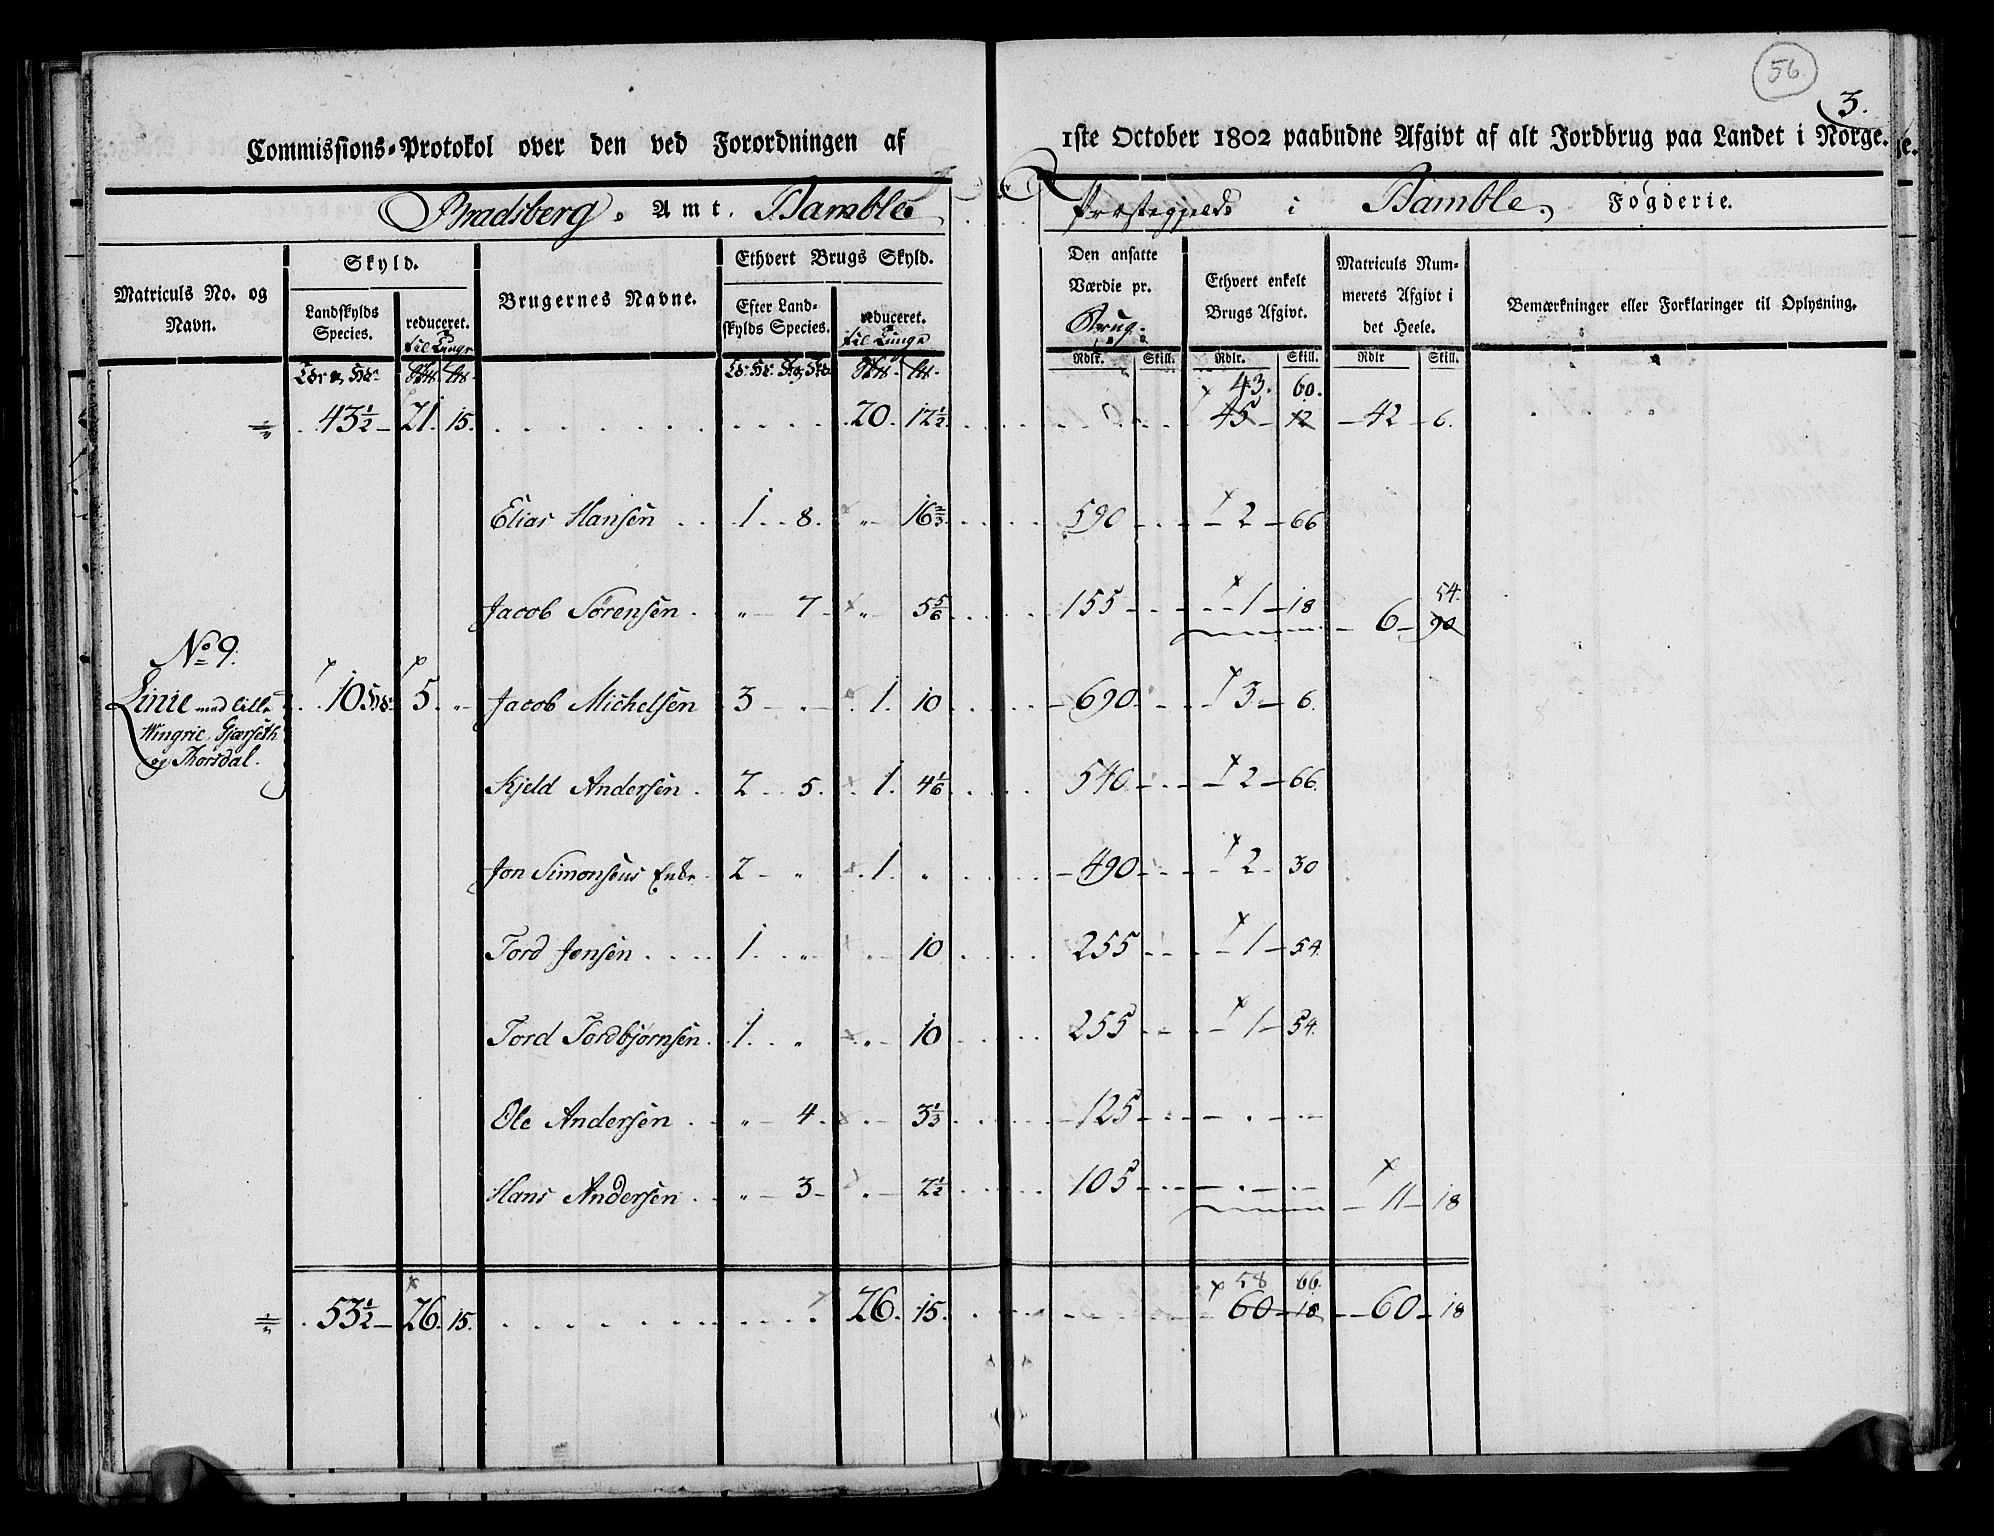 56
3.
Commissions-Protokol over den ved Forordningen af 1ste October 1802 paabudne Afgivt af alt Jordbrug paa Landet i Norge.
Bradsberg Amt. Bamble Præstegjeld i Bamble Føgderie.
Matriculs No. og Navn.
Skyld.
Landskylds Species.
reduceret. til Tunge
Brugernes Navne.
Ethvert Brugs Skyld.
Efter Landskylds Species.
reduceret. til Tunge
Den ansatte Værdie pr. Brug.
Rdlr. Skill.
Ethvert enkelt Brugs Afgivt.
Rdlr. Skill.
Matriculs Nummerets Afgivt i det Heele.
Rdlr Skill.
Bemærkninger eller Forklaringer til Oplysning.
43. 60.
43½ 21. 15. 20. 12½ 45 12 42 6.
Elias Hansen 1 8. 16⅔ 590 2 66
Jacob Sørensen 7 5⅚ 155 1 18
54.
6 90
No 9.
Linie med Lille Wingrie, Gjærseth og Thorsdal.
10 5
Jacob Michelsen 3 1 10 690 3 6.
Kjeld Andersen 2 5. 1. 4⅙ 540 2 66.
Jon Simonsens Enke 2 1 490 2 30
Tord Jensen 1 10 255 1 54.
Tord Tordbjørnsen 1 10 255 1 54.
Ole Andersen 4 3⅓ 125
Hans Andersen 3 2½ 105
11 18
58 66.
53½ 26. 15. 26. 15. 60 18 60 18